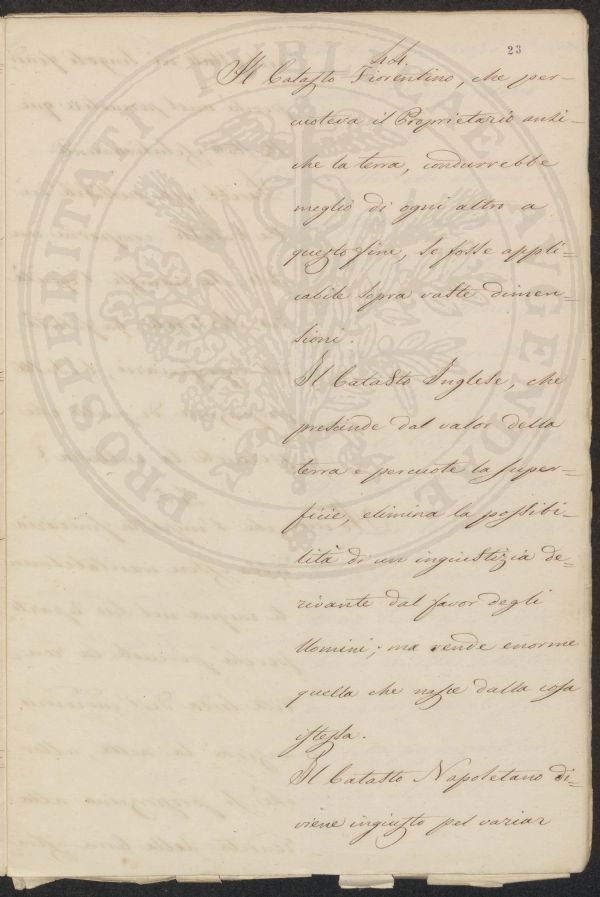 23
44.
Il Catasto Fiorentino, che per-
cuoteva il Proprietario anzi-
che la terra, condurrebbe
meglio di ogni altro a
questo fine, se fosse appli-
cabile sopra vaste dimen-
sioni.
Il Catasto Inglese, che
prescinde dal valor della
terra e percuote la super-
ficie, elimina la possibi-
lità di un ingiustizia de-
rivante dal favor degli
Uomini; ma rende enorme
quella che nasce dalla cosa
istessa.
Il Catasto Napoletano di-
viene ingiusto pel variar
PROSPERITATI PUBLICAE AUGENDAE